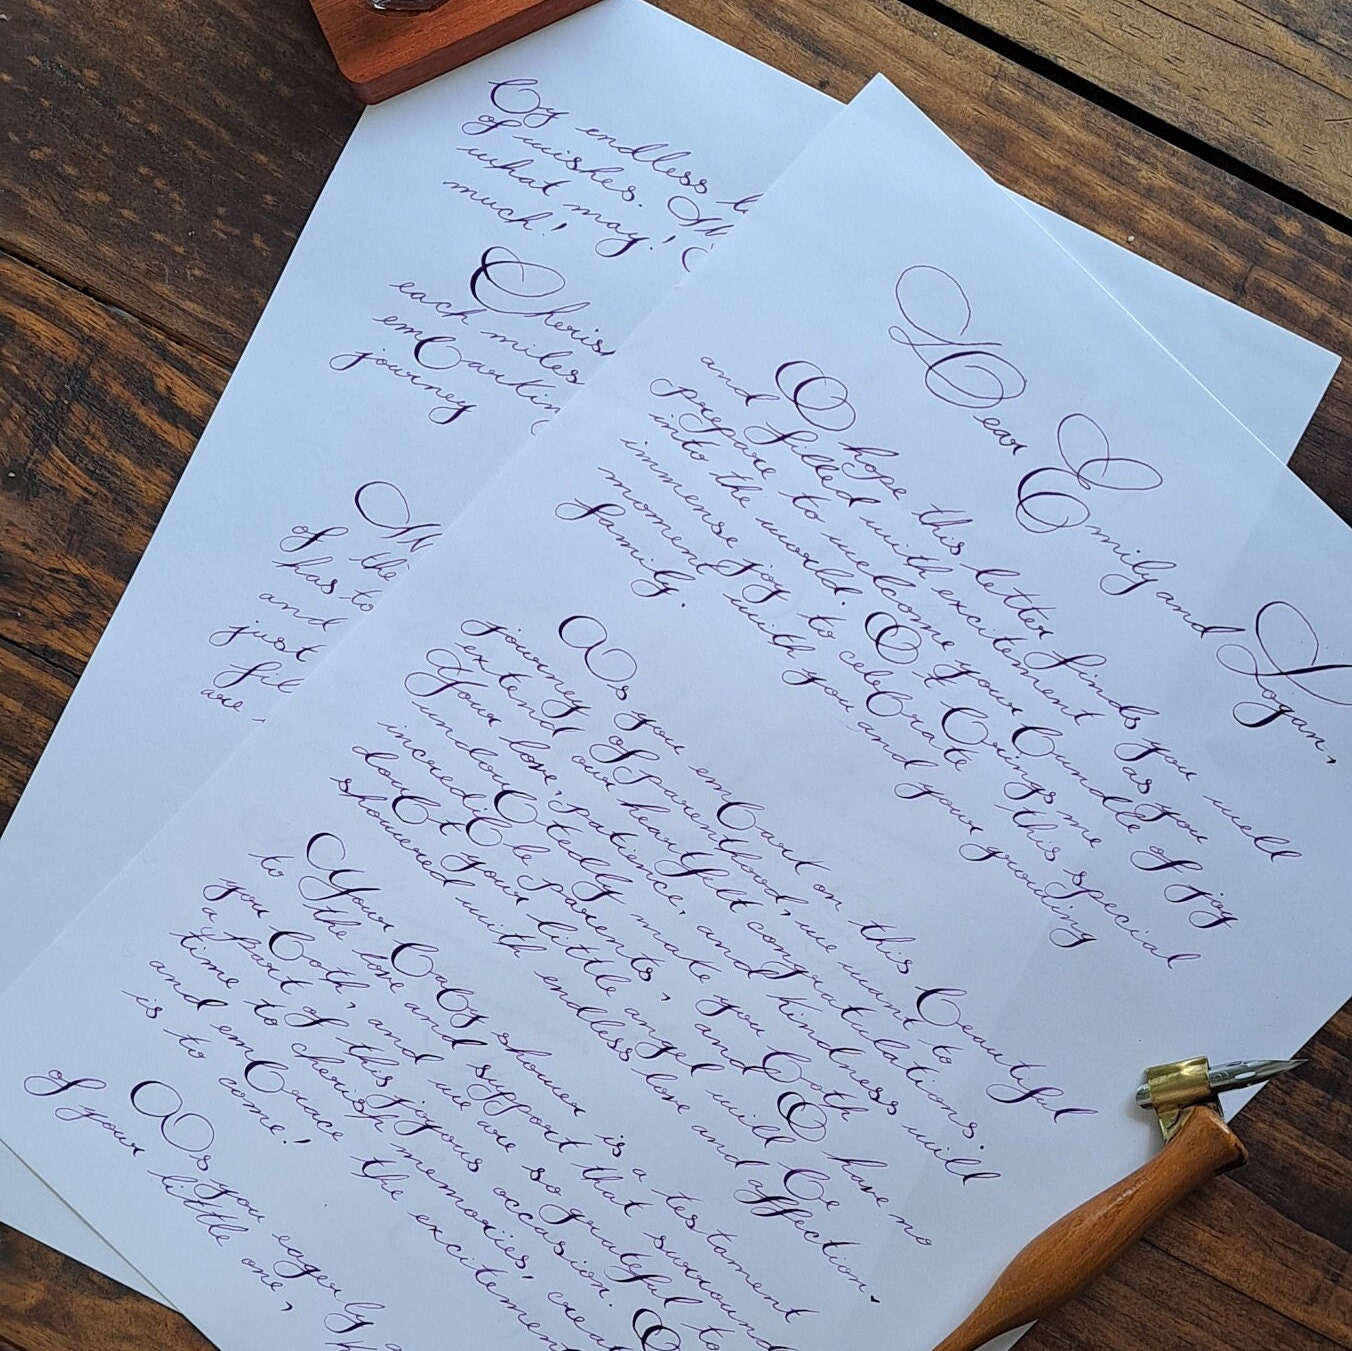 Dear Emily and Logan,
I hope this letter finds you well
and filled with excitement as you
prepare to welcome your bundle of joy
into the world. It brings me
immense joy to celebrate this special
moment with you and your growing
family.
As you embark on this beautiful
journey of parenthood, we want to
extend our heartfelt congratulations.
Your love, patience, and kindness will
undoubtedly make you both
incredible parents, and I have no
doubt your little angel will be
showered with endless love and affection.
Your baby shower is a testament
to the love and support that surround
you both, and we are so grateful to
a part of this joyous occasion.
time to cherish memories, creat
and embrace the excitement
is to come!
As you eagerly a
of your little one,
by endless
of wishes.
what may!
much!
Cheris
each miles
embarkin
journey
of the
has to
and
just
fil
are